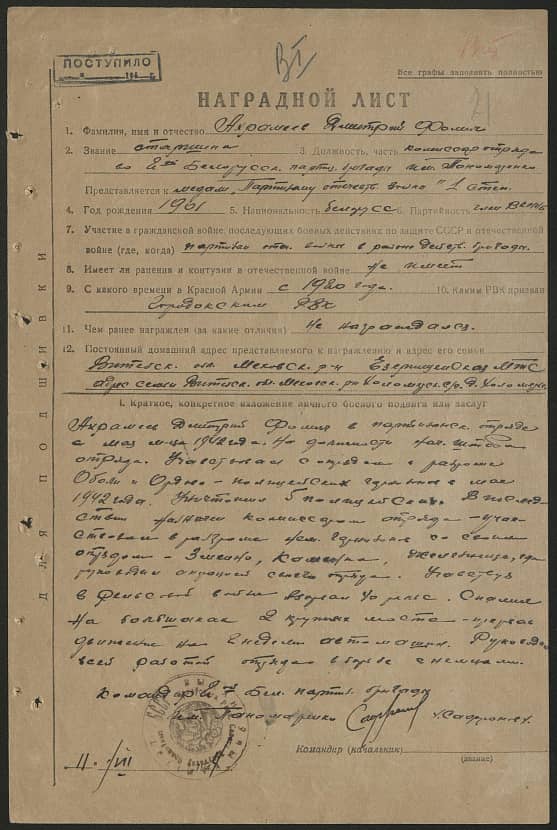 ПОСТУПИЛО
194 г.
ВI
21
Все графы заполнять полностью
НАГРАДНОЙ ЛИСТ
1. Фамилия, имя и отчество Ахрамеев Дмитрий Фомич
2. Звание старшина 3. Должность, часть комиссар отряда
во 2ой Белорусск. партиз. бригаде им. Пономаренко
Представляется к медали "Партизану отечеств. войны" 1 степ.
4. Год рождения 1901 5. Национальность белорусс 6. Партийность член ВКП(б)
7. Участие в гражданской войне, последующих боевых действиях по защите СССР и отечественной
войне (где, когда) партизан отеч. войны в районе действ. бригады.
8. Имеет ли ранения и контузии в отечественной войне не имеет
9. С какого времени в Красной Армии с 1920 года. 10. Каким РВК призван
Городокским РВК
11. Чем ранее награжден (за какие отличия) Не награждался.
12. Постоянный домашний адрес представляемого к награждению и адрес его семьи
Витебск. обл. Меховск. р-н Езерищенская МТС
адрес семьи Витебск. обл. Меховск. р-н
I. Краткое, конкретное изложение личного боевого подвига или заслуг
Ахрамеев Дмитрий Фомич в партизанск. отряде
с мая м-ца 1942 года. На должности нач. штаба
отряда. Участвовал с отрядом в разгроме
Оболи и Ордово - полицейских гарнизонов в мае
1942 года. Уничтожил 5 полицейских. В послед-
ствии назначен комиссаром отряда - участ-
ствовал в разгроме нем. гарнизонов со своим
отрядом -
руководил операцией своего отряда. Участвуя
в рельсовой войне взорвал рельс.
на большаках 2 крупных моста - прервав
движение на 2 недели автомашин. Руководил
всей работой отряда в борьбе с немцами.
Командир 2й Бел. партиз. бригады
им. Пономаренко
Командир (начальник)
(звание)
11/VII
ДЛЯ ПОДШИВКИ